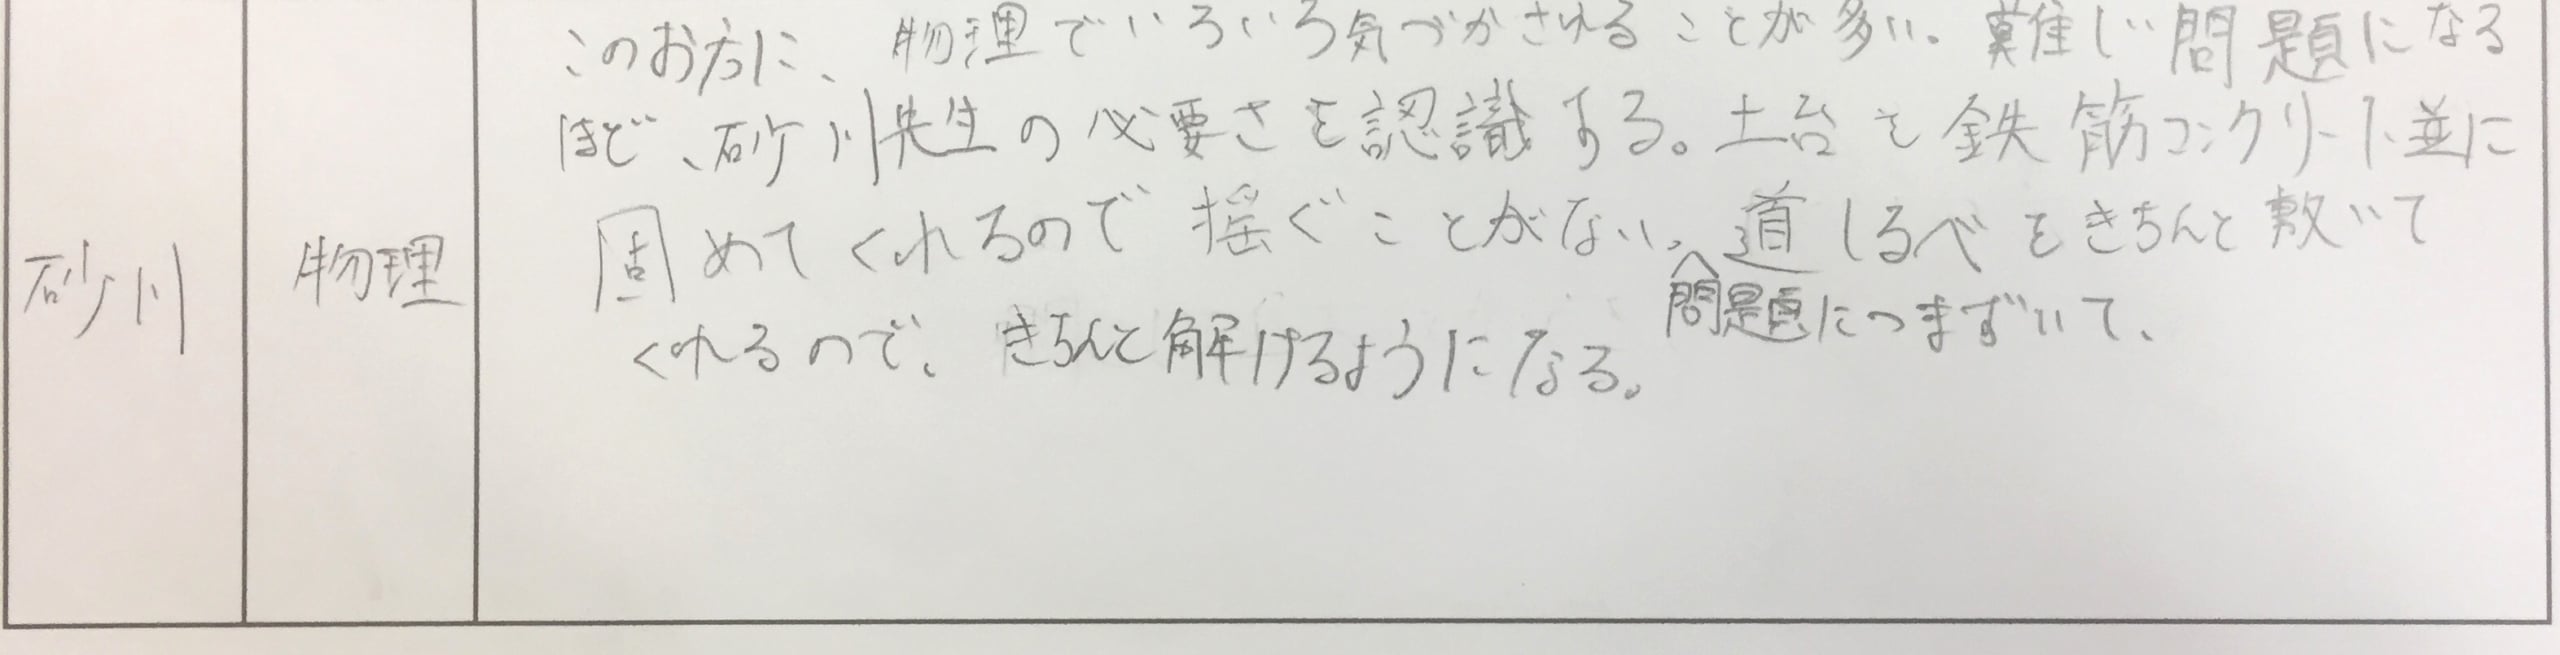 砂川
物理
このお方に、物理でいろいろ気づかされることが多い。難しい問題になる
ほど、砂川先生の必要さを認識する。土台を鉄筋コンクリート並に
固めてくれるので揺ぐことがない。道しるべをきちんと敷いて
問題につまずいて、
くれるので、きちんと解けるようになる。